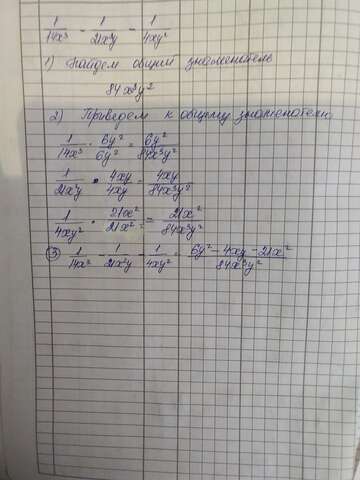 1/14x³ - 1/21x²y - 1/4xy²
1) Найдем общий знаменатель
84x³y²
2) Приведем к общему знаменателю
1/14x³ · 6y²/6y² = 6y²/84x³y²
1/21x²y · 4xy/4xy = 4xy/84x³y²
1/4xy² · 21x²/21x² = 21x²/84x³y²
3) 1/14x² - 1/21x²y - 1/4xy² = 6y² - 4xy - 21x²/84x³y²